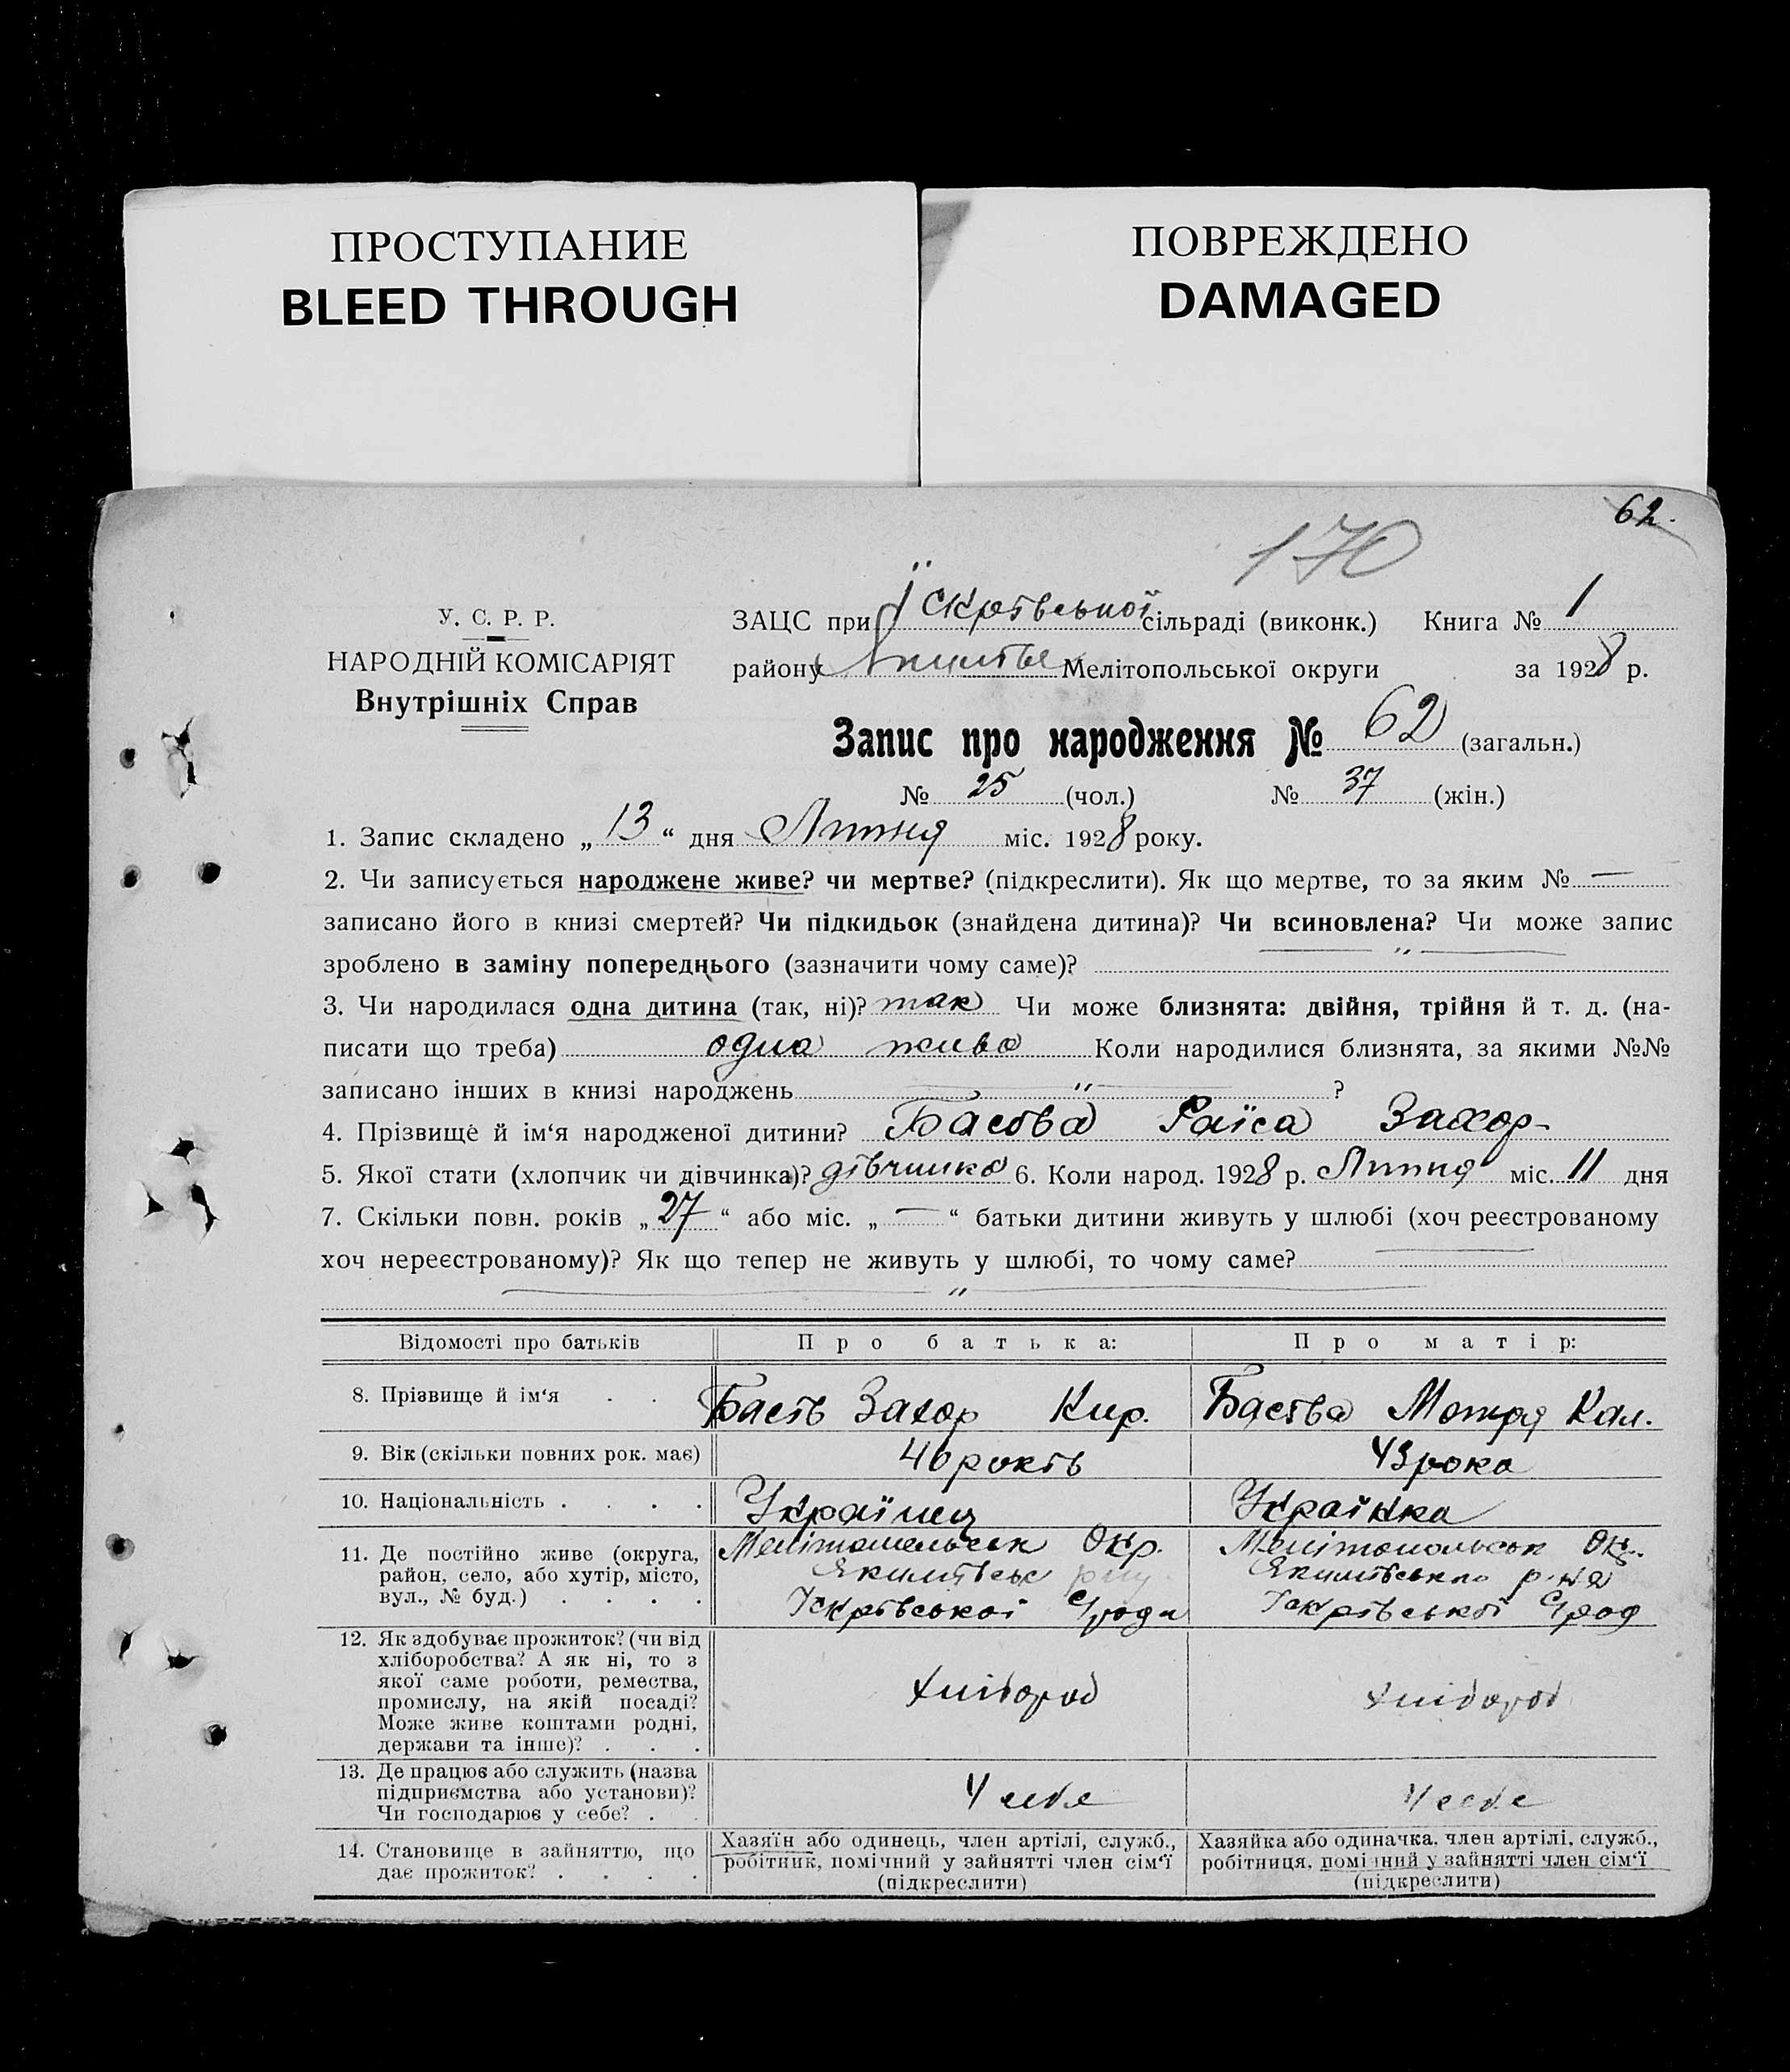 ПРОСТУПАНИЕ
BLEED THROUGH
ПОВРЕЖДЕНО
DAMAGED
62.
170
У. С. Р. Р.
НАРОДНІЙ КОМІСАРІЯТ
Внутрішніх Справ
ЗАЦС при Їскрівської сільраді (виконк.) Книга № 1
району Мелітопольської округи за 1928 р.
Запис про народження № 62 (загальн.)
№ 25 (чол.) № 37 (жін.)
1. Запис складено „ 13 “ дня Липня міс. 1928 року.
2. Чи записується народжене живе? чи мертве? (підкреслити). Як що мертве, то за яким № —
записано його в книзі смертей? Чи підкидьок (знайдена дитина)? Чи всиновлена? Чи може запис
зроблено в заміну попереднього (зазначити чому саме)? — „ —
3. Чи народилася одна дитина (так, ні)? так Чи може близнята: двійня, трійня й т. д. (на-
писати що треба) одна жива Коли народилися близнята, за якими №№
записано інших в книзі народжень — „ — ?
4. Прізвище й ім‘я народженої дитини? Басова Раїса Захор-
5. Якої стати (хлопчик чи дівчинка)? дівчинка 6. Коли народ. 1928 р. Липня міс. 11 дня
7. Скільки повн. років „ 27 “ або міс. „ — “ батьки дитини живуть у шлюбі (хоч реєстрованому
хоч нереєстрованому)? Як що тепер не живуть у шлюбі, то чому саме? —
— „ —
Відомості про батьків Про батька: Про матір:
8. Прізвище й ім‘я . . Басів Захор Кир. Басіва Мотря Кал.
9. Вік (скільки повних рок. має) 46 років 43 рока
10. Національність . . . . Українец Українка
11. Де постійно живе (округа,
район, село, або хутір, місто,
вул., № буд.) . . . .
Мелітопольськ Окр.
Якимівськ
Іскрівської С/ради
Мелітопольськ Ок.
Якимівського р-на
Іскрівської С/рад
12. Як здобуває прожиток? (чи від
хліборобства? А як ні, то з
якої саме роботи, ремества,
промислу, на якій посаді?
Може живе коштами родні,
держави та інше)? . . .
хлібороб
хлібороб
13. Де працює або служить (назва
підприємства або установи)?
Чи господарює у себе? .
У себе
У себе
14. Становище в зайняттю, що
дає прожиток? . . . .
Хазяїн або одинець, член артілі, служб.,
робітник, помічний у зайнятті член сім‘ї
(підкреслити)
Хазяйка або одиначка, член артілі, служб.,
робітниця, помічний у зайнятті член сім‘ї
(підкреслити)